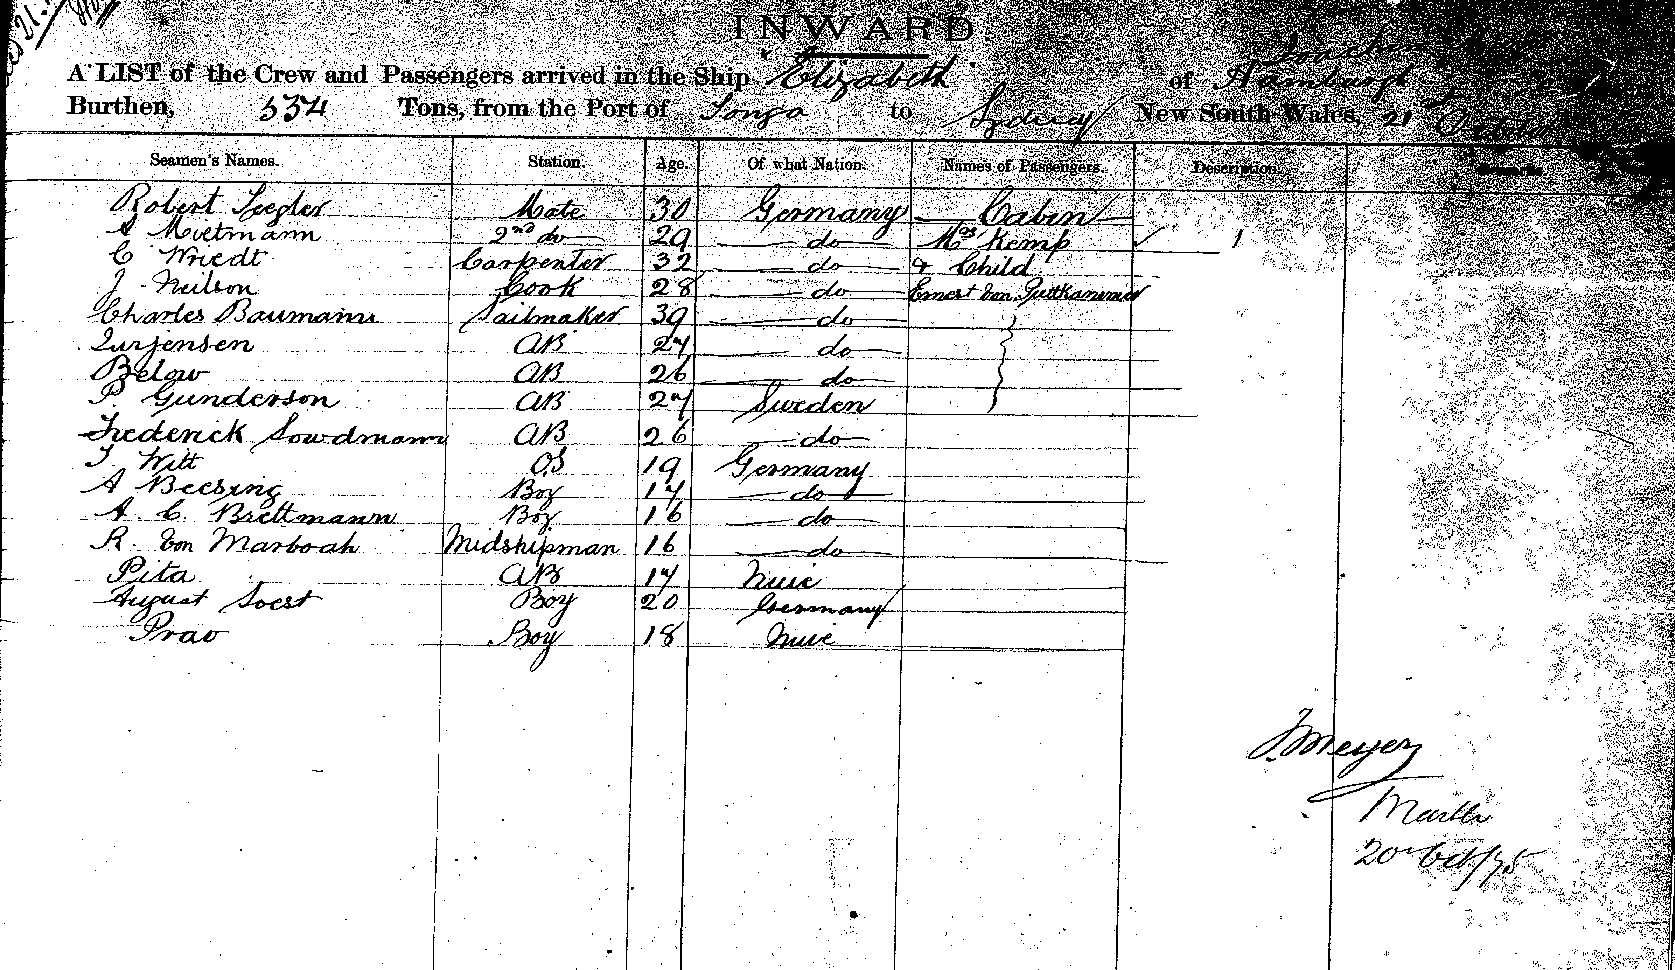 INWARD.
A LIST of the Crew and Passengers arrived in the Ship Elizabeth of Hamburg
Burthen, 534 Tons, from the Port of Tonga to Sydney New South Wales, 21
Seamen's Names. Station. Age. Of what Nation. Names of Passengers. Description.
Robert Seegler Mate 30 Germany Cabin
A Mietmann 2nd do 29 do Mrs Kemp 1
C Wriedt Carpenter 32 do & Child
J Neilson Cook 28 do Ernest von Puttkammer
Charles Baumann Sailmaker 39 do
Jurjensen AB 27 do
Below AB 26 do
P. Gunderson AB 27 Sweden
Frederick Sowdmann AB 26 do
Witt OS 19 Germany
A Beesing Boy 17 do
A C. Brettmann Boy 16 do
R. von Marboah Midshipman 16 do
Pita AB 17 Nuie
August Soest Boy 20 Germany
Prao Boy 18 Nuie
J. Meyer
20 Oct/75